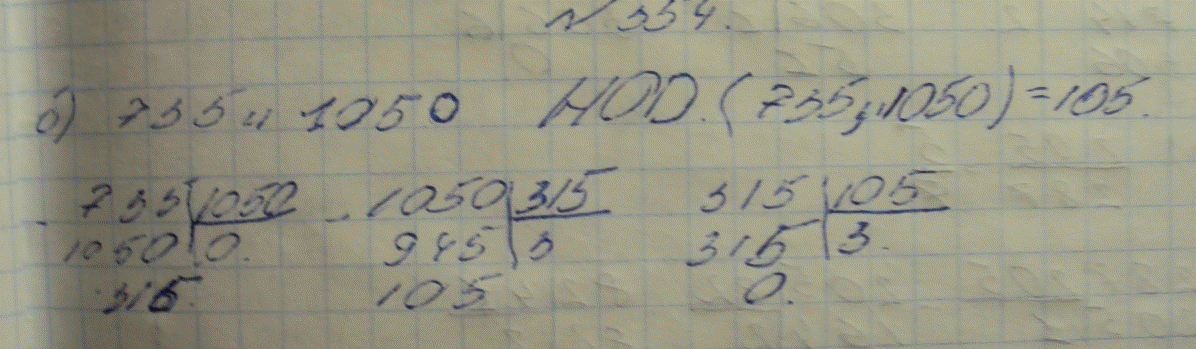 № 354.
б) 735 и 1050 НОД. (735, и 1050) = 105.
- 735 | 1050 - 1050 | 315 315 | 105
1050 | 0. 945 | 3 315 | 3.
315. 105 0.